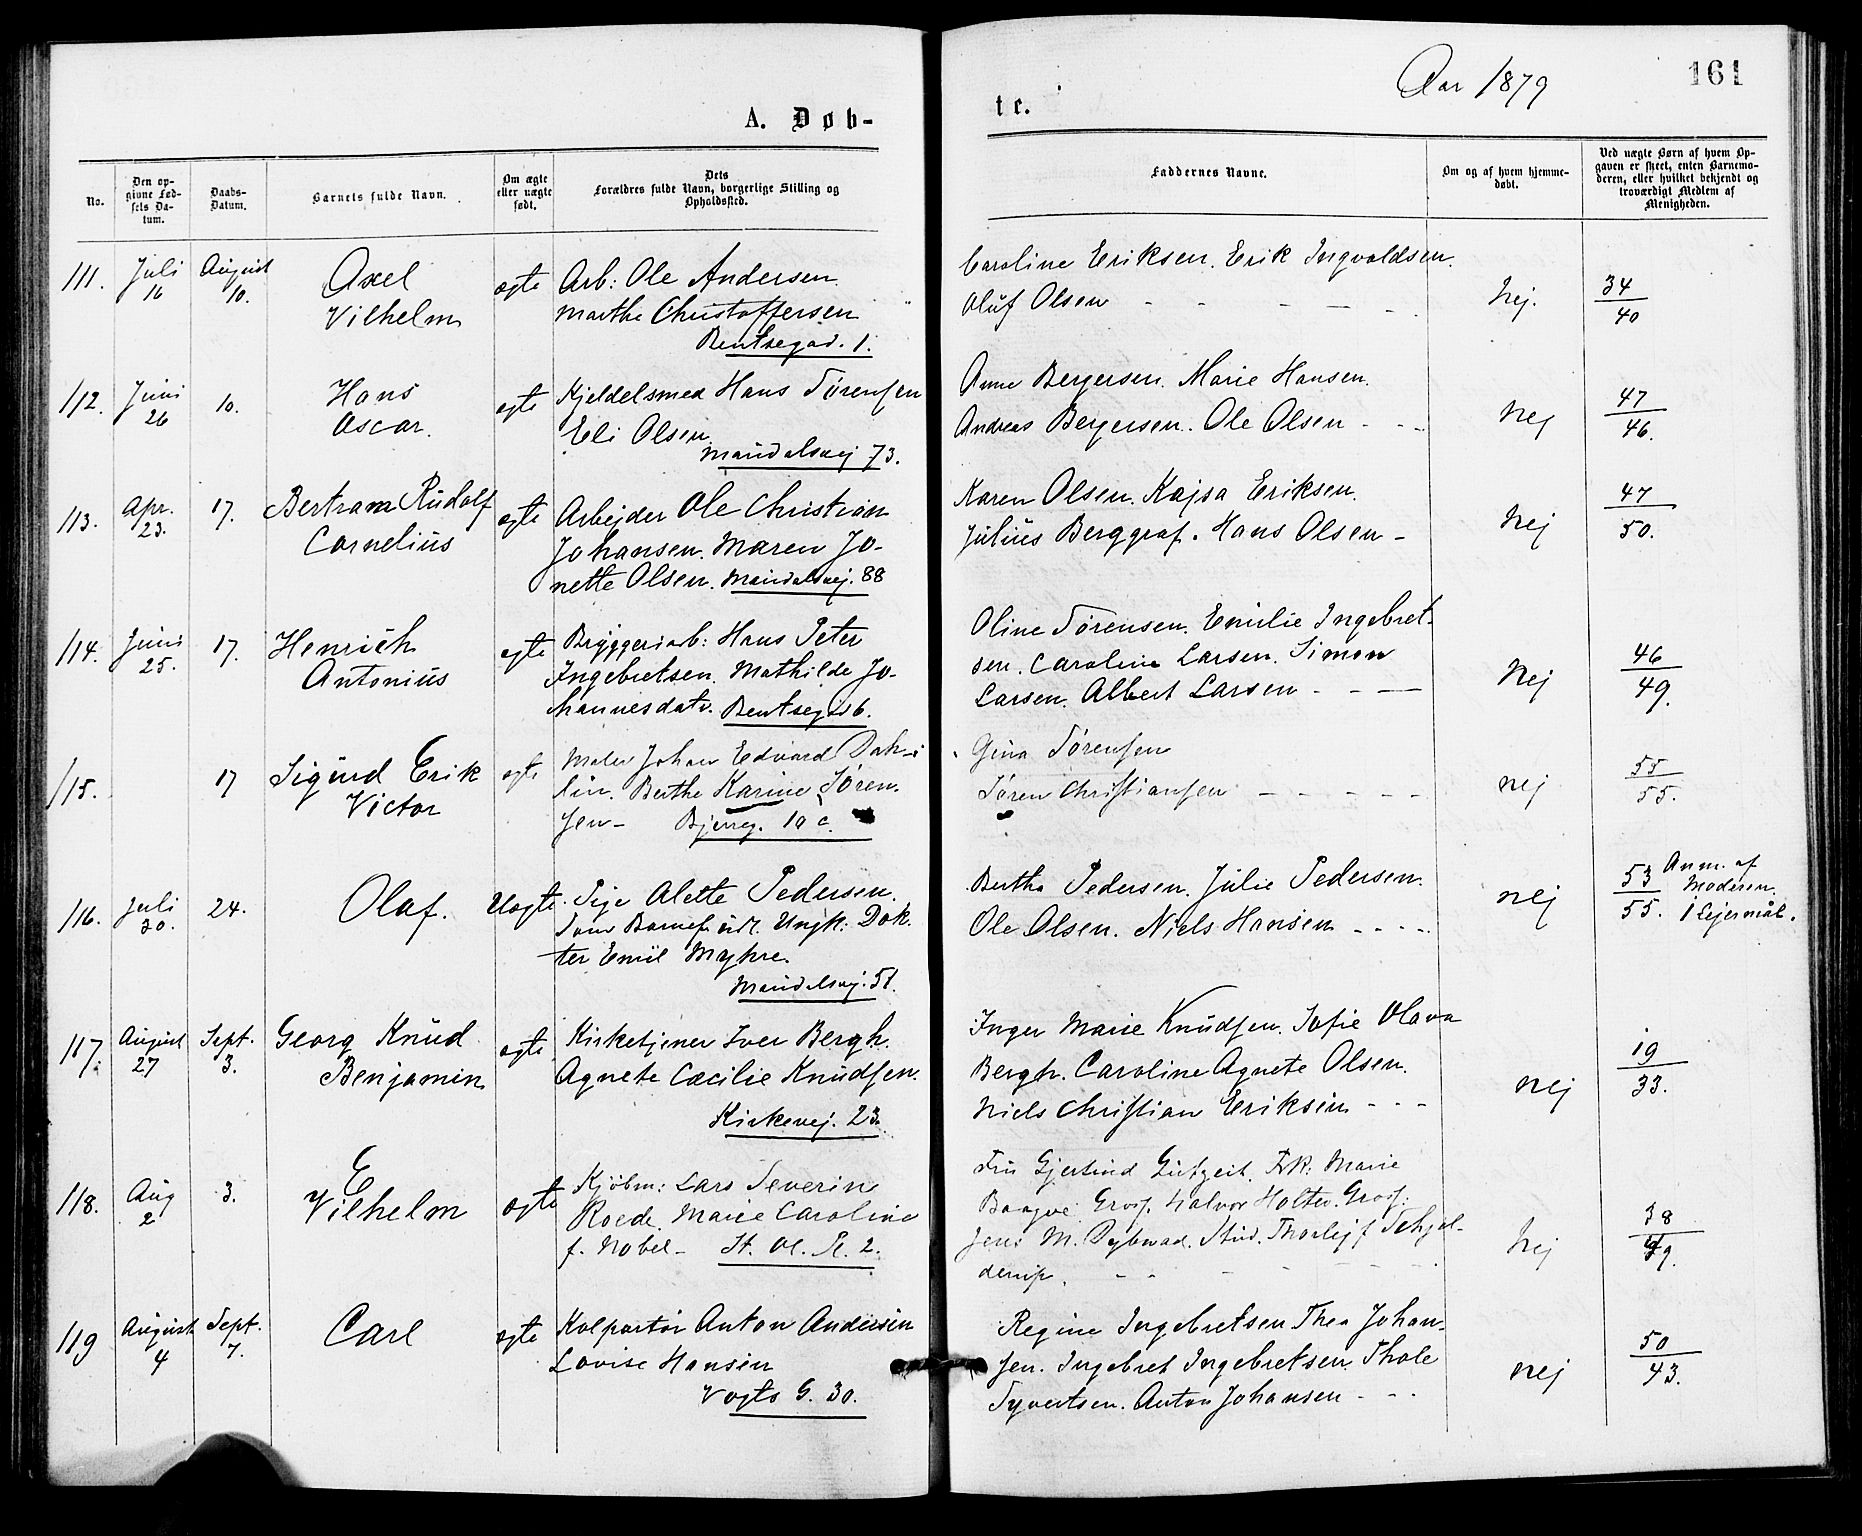 Aar 1879
161
A. Døb-
te.
No.
Den op-
givne Fød-
sels Da-
tum.
Daabs-
Datum.
Barnets fulde Navn.
Om ægte
eller uægte
født.
Dets
Forældres fulde Navn, borgerlige Stilling og
Opholdssted.
Faddernes Navne.
Om og af hvem hjemme-
døbt.
Ved uægte Børn af hvem Op-
gaven er skeet, enten Barnemo-
deren, eller hvilket bekjendt og
troværdigt Medlem af
Menigheden.
111. Juli 16 August 10. Axel
Vilhelm
ægte
Arb: Ole Andersen
Marthe Christoffersen
Bentsegad. 1.
Caroline Eriksen. Erik Ingvaldsen.
Oluf Olsen - - - - -
Nej.
34
40
112. Juni 26 10. Hans
Oscar.
ægte
Kjeldelsmed Hans Sørensen
Eli Olsen
Maridalsvej 73.
Anne Bergersen. Marie Hansen.
Andreas Bergersen. Ole Olsen - - -
Nej
47
46.
113. Apr. 23. 17. Bertram Rudolf
Cornelius
ægte
Arbejder Ole Christian
Johansen. Maren Jo-
nette Olsen. Maridalsvej. 88
Karen Olsen. Kajsa Eriksen.
Julius Berggraf. Hans Olsen -
Nej
47
50.
114. Juni 25. 17. Henrich
Antonius
ægte
Bryggeriarb: Hans Peter
Ingebretsen. Mathilde Jo-
hannesdatr. Bentsegad 6.
Oline Sørensen. Emilie Ingebret-
sen. Caroline Larsen. Simon
Larsen. Albert Larsen - - - -
Nej
46
49.
115. 17 Sigurd Erik
Victor
ægte
Maler Johan Edvard Dah-
lin. Berthe Karine Søren-
sen - Bjerreg. 10 c.
Gina Sørensen
Søren Christiansen - - - - -
nej
55
55.
116. Juli 20. 24. Olaf.
Uægte.
Pige Alette Pedersen.
Som Barnef. udl. Ungk: Dok-
ter Emil Myhre.
Maridalsvej. 51.
Bertha Pedersen. Julie Pedersen.
Ole Olsen. Niels Hansen - - - -
nej
53
55.
Anm. af
Moderen.
1 Lejermål.
117. August 27 Sept. 3. Georg Knud
Benjamin
ægte
Kirketjener Iver Bergh.
Agnete Cæcilie Knudsen.
Kirkevej. 23.
Inger Marie Knudsen. Sofie Olava
Bergh. Caroline Agnete Olsen.
Niels Christian Eriksen - - -
nej
19
33.
118. Aug 2 3. E
Vilhelm
ægte
Kjøbm: Lars Severin
Roede. Marie Caroline
f. Nobel - St. Ol. Pl. 2.
Fru Gjertrud Gutzeit. Frk: Marie
Baagøe. Gross. Halvor Holter. Gross:
Jens M. Dybwad. Stud. Thorleif Schjel-
derup. - - - - - -
Nej
38
49.
119 August 4 Sept. 7. Carl
ægte
Kolportør Anton Andersen
Lovise Hansen
Vogts G. 30.
Regine Ingebretsen Thea Johan-
sen. Ingebret Ingebretsen. Thole
Syvertsen. Anton Johansen - - -
nej
50
43.